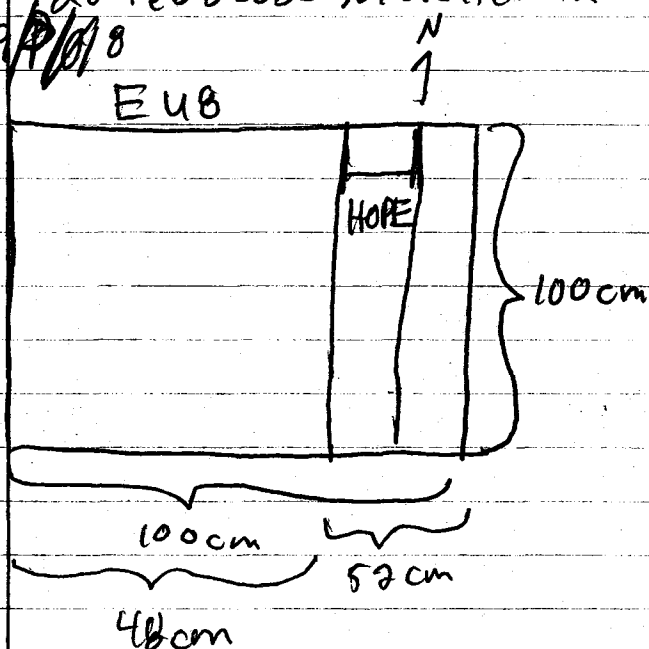 8
N
EU8
HOPE
100cm
100cm
52cm
48cm